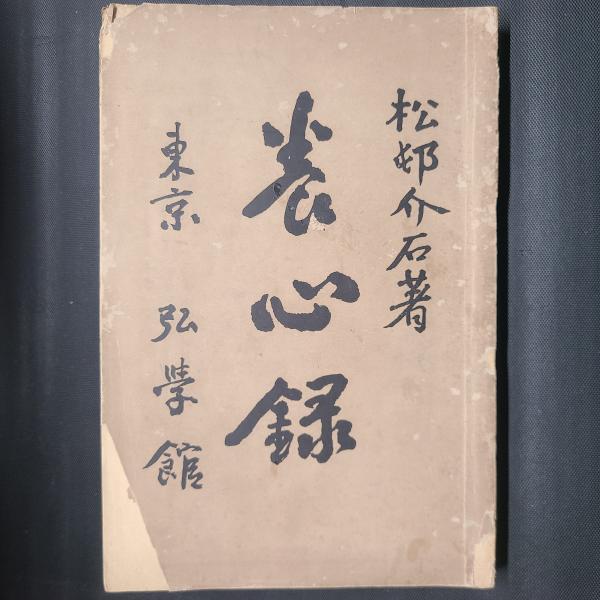 松邨介石著
養心録
東京 弘學館